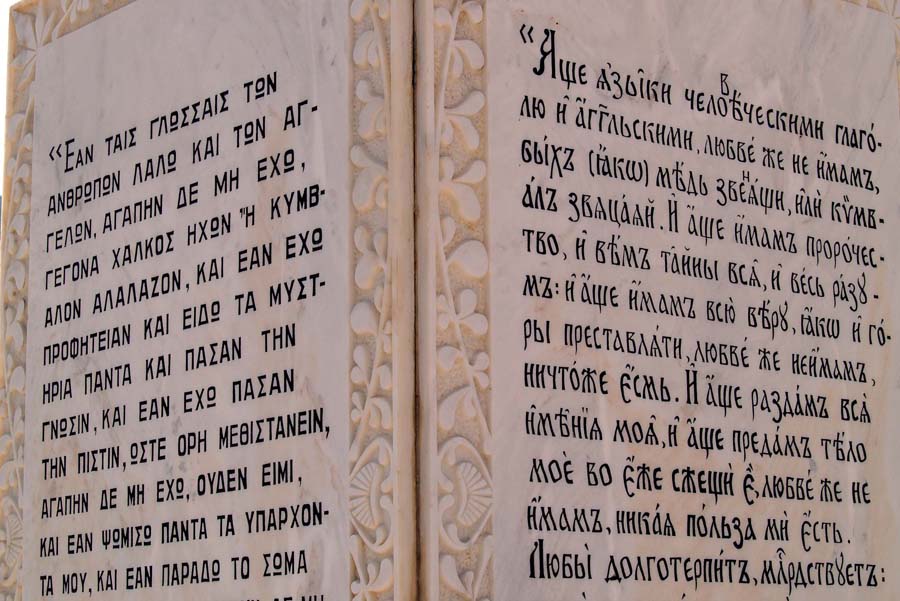 «ΕΑΝ ΤΑΙΣ ΓΛΩΣΣΑΙΣ ΤΩΝ
ΑΝΘΡΩΠΩΝ ΛΑΛΩ ΚΑΙ ΤΩΝ ΑΓ-
ΓΕΛΩΝ, ΑΓΑΠΗΝ ΔΕ ΜΗ ΕΧΩ,
ΓΕΓΟΝΑ ΧΑΛΚΟΣ ΗΧΩΝ Ἢ ΚΥΜΒ-
ΑΛΟΝ ΑΛΑΛΑΖΟΝ, ΚΑΙ ΕΑΝ ΕΧΩ
ΠΡΟΦΗΤΕΙΑΝ ΚΑΙ ΕΙΔΩ ΤΑ ΜΥΣΤ-
ΗΡΙΑ ΠΑΝΤΑ ΚΑΙ ΠΑΣΑΝ ΤΗΝ
ΓΝΩΣΙΝ, ΚΑΙ ΕΑΝ ΕΧΩ ΠΑΣΑΝ
ΤΗΝ ΠΙΣΤΙΝ, ΩΣΤΕ ΟΡΗ ΜΕΘΙΣΤΑΝΕΙΝ,
ΑΓΑΠΗΝ ΔΕ ΜΗ ΕΧΩ, ΟΥΔΕΝ ΕΙΜΙ,
ΚΑΙ ΕΑΝ ΨΩΜΙΣΩ ΠΑΝΤΑ ΤΑ ΥΠΑΡΧΟΝ-
ΤΑ ΜΟΥ, ΚΑΙ ΕΑΝ ΠΑΡΑΔΩ ΤΟ ΣΩΜΑ
«А҆ще ѧ҆зы́ки человѣ́ческими глаго́-
лю и҆ а҆́гг҃льскими, любве́ же не и҆́мамъ,
бы́хъ (ꙗ҆́кѡ) мѣ́дь звенѧ́щи, и҆лѝ кѷмв-
а́лъ звѧца́ѧй. И҆ а҆́ще и҆́мамъ проро́чес-
тво, и҆ вѣ́мъ та̑йны всѧ̑, и҆ ве́сь ра́зу-
мъ: и҆ а҆́ще и҆́мамъ всю̀ вѣ́ру, ꙗ҆́кѡ и҆ го́-
ры преставлѧ́ти, любве́ же неи҆́мамъ,
ничто́же є҆́смь. И҆ а҆́ще разда́мъ всѧ̑
и҆мѣ̑нїѧ моѧ̑, и҆ а҆́ще преда́мъ тѣ́ло
моѐ во є҆́же сжещѝ є҆̀, любве́ же не
и҆́мамъ, ника́ѧ по́льза мѝ є҆́сть.
Любы̀ долготерпи́тъ, млⷭ҇рдствуетъ: